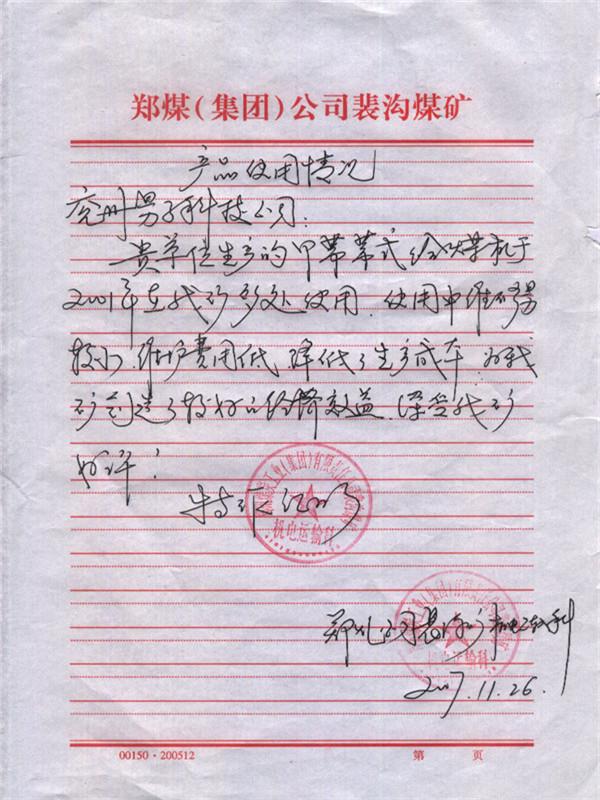 郑煤(集团)公司裴沟煤矿
产品使用情况
兖州男子科技公司:
贵单位生产的甲带式给煤机于
2001年在我矿多处使用. 使用中维修量
较小. 维护费用低. 降低了生产成本. 为我
矿创造了较好的经济效益. 深受我矿
好评!
特此
(集团)有限责任
机电运输科
郑煤公司裴沟矿机电运输科
机电运输科
2007.11.26.
00150·200512
第 页